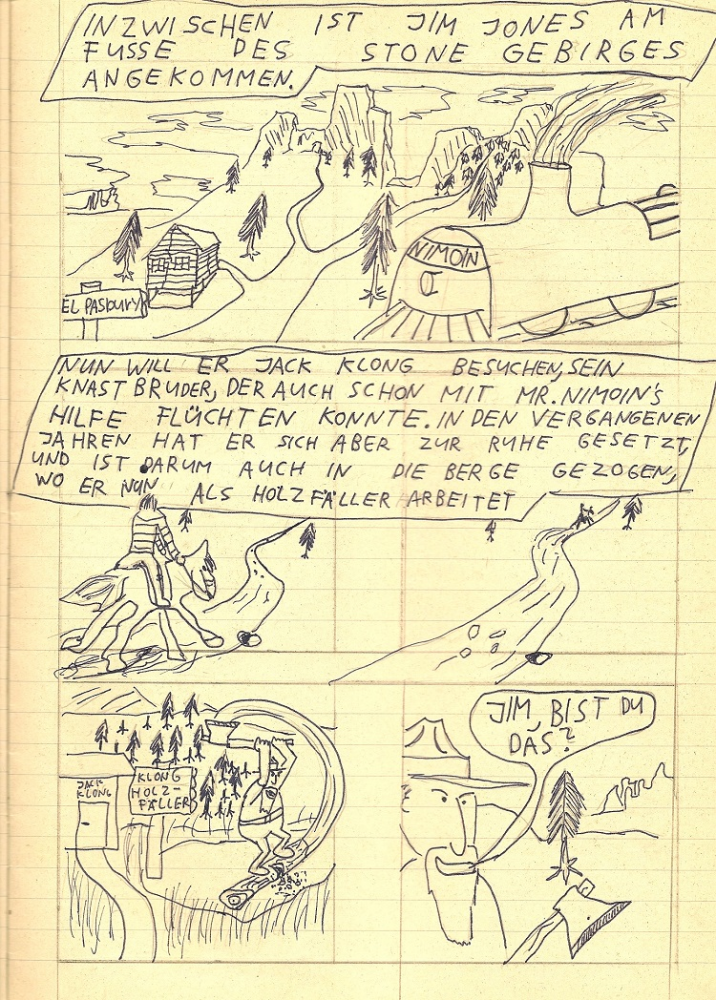 INZWISCHEN IST JIM JONES AM
FUSSE DES STONE GEBIRGES
ANGEKOMMEN.
NIMOIN
EL PASBURY
NUN WILL ER JACK KLONG BESUCHEN, SEIN
KNASTBRUDER, DER AUCH SCHON MIT MR. NIMOIN'S
HILFE FLÜCHTEN KONNTE. IN DEN VERGANGENEN
JAHREN HAT ER SICH ABER ZUR RUHE GESETZT,
UND IST DARUM AUCH IN DIE BERGE GEZOGEN,
WO ER NUN ALS HOLZFÄLLER ARBEITET
JACK
KLONG
KLONG
HOLZ-
FÄLLER
JIM, BIST DU
DAS?